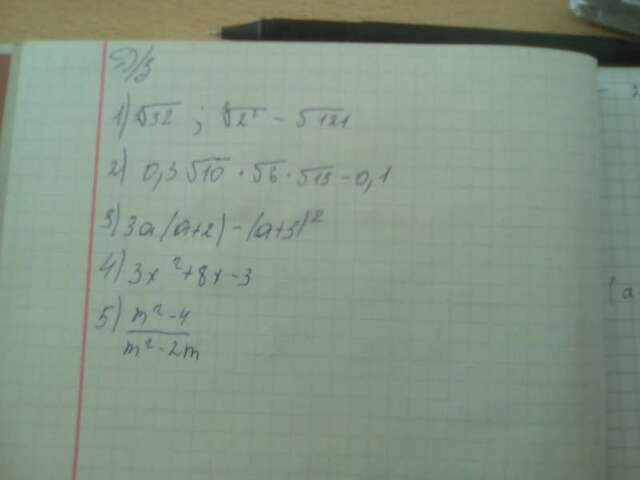 Д/з
1) √32 ; √2 - √121
2) 0,3√10 · √6 · √15 - 0,1
3) 3a(a+2) - (a+3)²
4) 3x²+8x-3
5) m²-4
m²-2m
(a